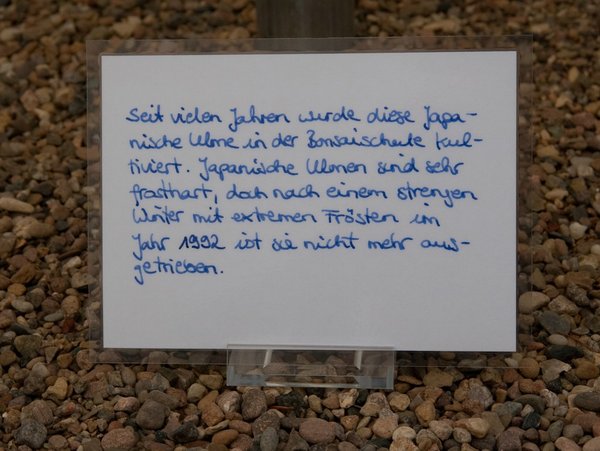 Seit vielen Jahren wurde diese Japa-
nische Ulme in der Bonsaischule kul-
tiviert. Japanische Ulmen sind sehr
frosthart, doch nach einem strengen
Winter mit extremen Frösten im
Jahr 1992 ist sie nicht mehr aus-
getrieben.